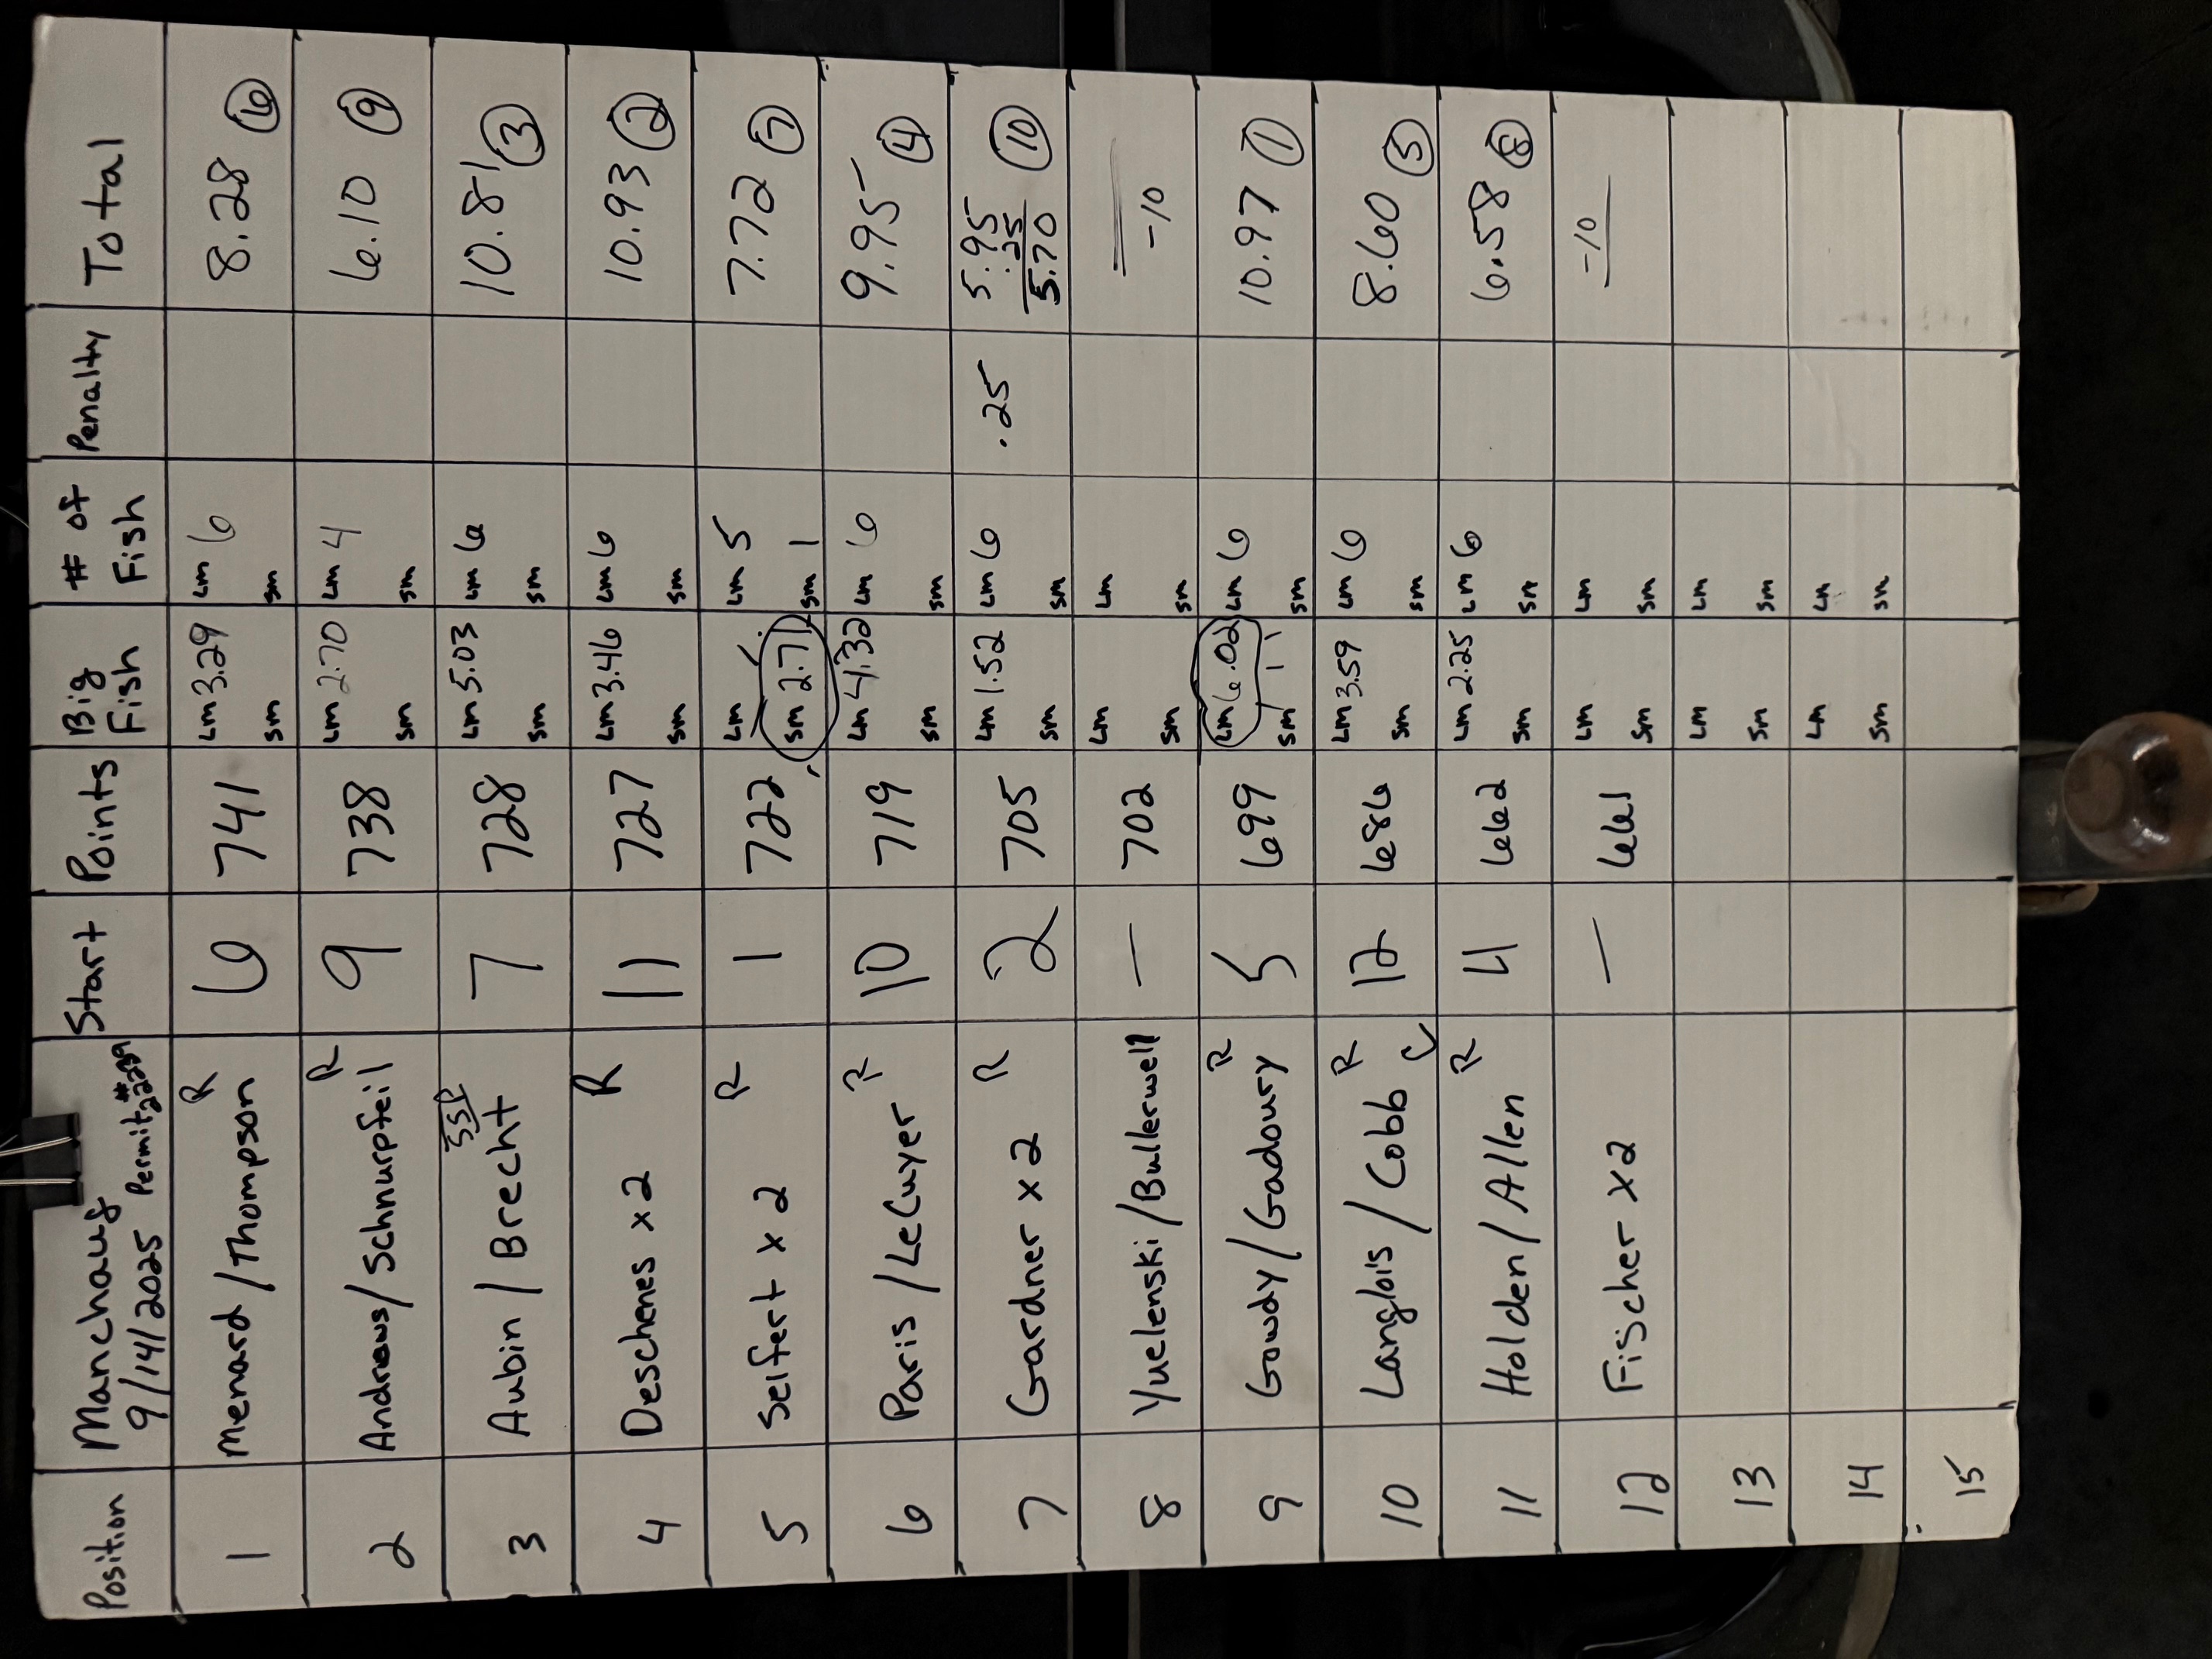 Position Manchaug 9/14/2025 Permit #22289 Start Points Big Fish # of Fish Penalty Total
1 Menard/Thompson R 6 741 LM 3.29 SM LM 6 SM 8.28 (6)
2 Andrews/Schnurpfeil R 9 738 LM 2.70 SM LM 4 SM 6.10 (9)
3 Aubin/Brecht 7 728 LM 5.03 SM LM 6 SM 10.81 (3)
4 Deschenes x2 R 11 727 LM 3.46 SM LM 6 SM 10.93 (2)
5 Seifert x2 R 1 722 LM SM 2.71 LM 5 SM 1 7.72 (7)
6 Paris/LeCuyer R 10 719 LM 4.32 SM LM 6 SM 9.95 (4)
7 Gardner x2 R 2 705 LM 1.52 SM LM 6 SM .25 5.95 .25 5.70 (10)
8 Yuelenski/Bullerwell — 702 LM SM LM SM -10
9 Gowdy/Gadoury R 5 699 LM 6.02 SM LM 6 SM 10.97 (1)
10 Langlois/Cobb R C 12 686 LM 3.59 SM LM 6 SM 8.60 (5)
11 Holden/Allen R 4 662 LM 2.25 SM LM 6 SM 6.58 (8)
12 Fischer x2 — 661 LM SM LM SM -10
13 LM SM LM SM
14 LM SM LM SM
15